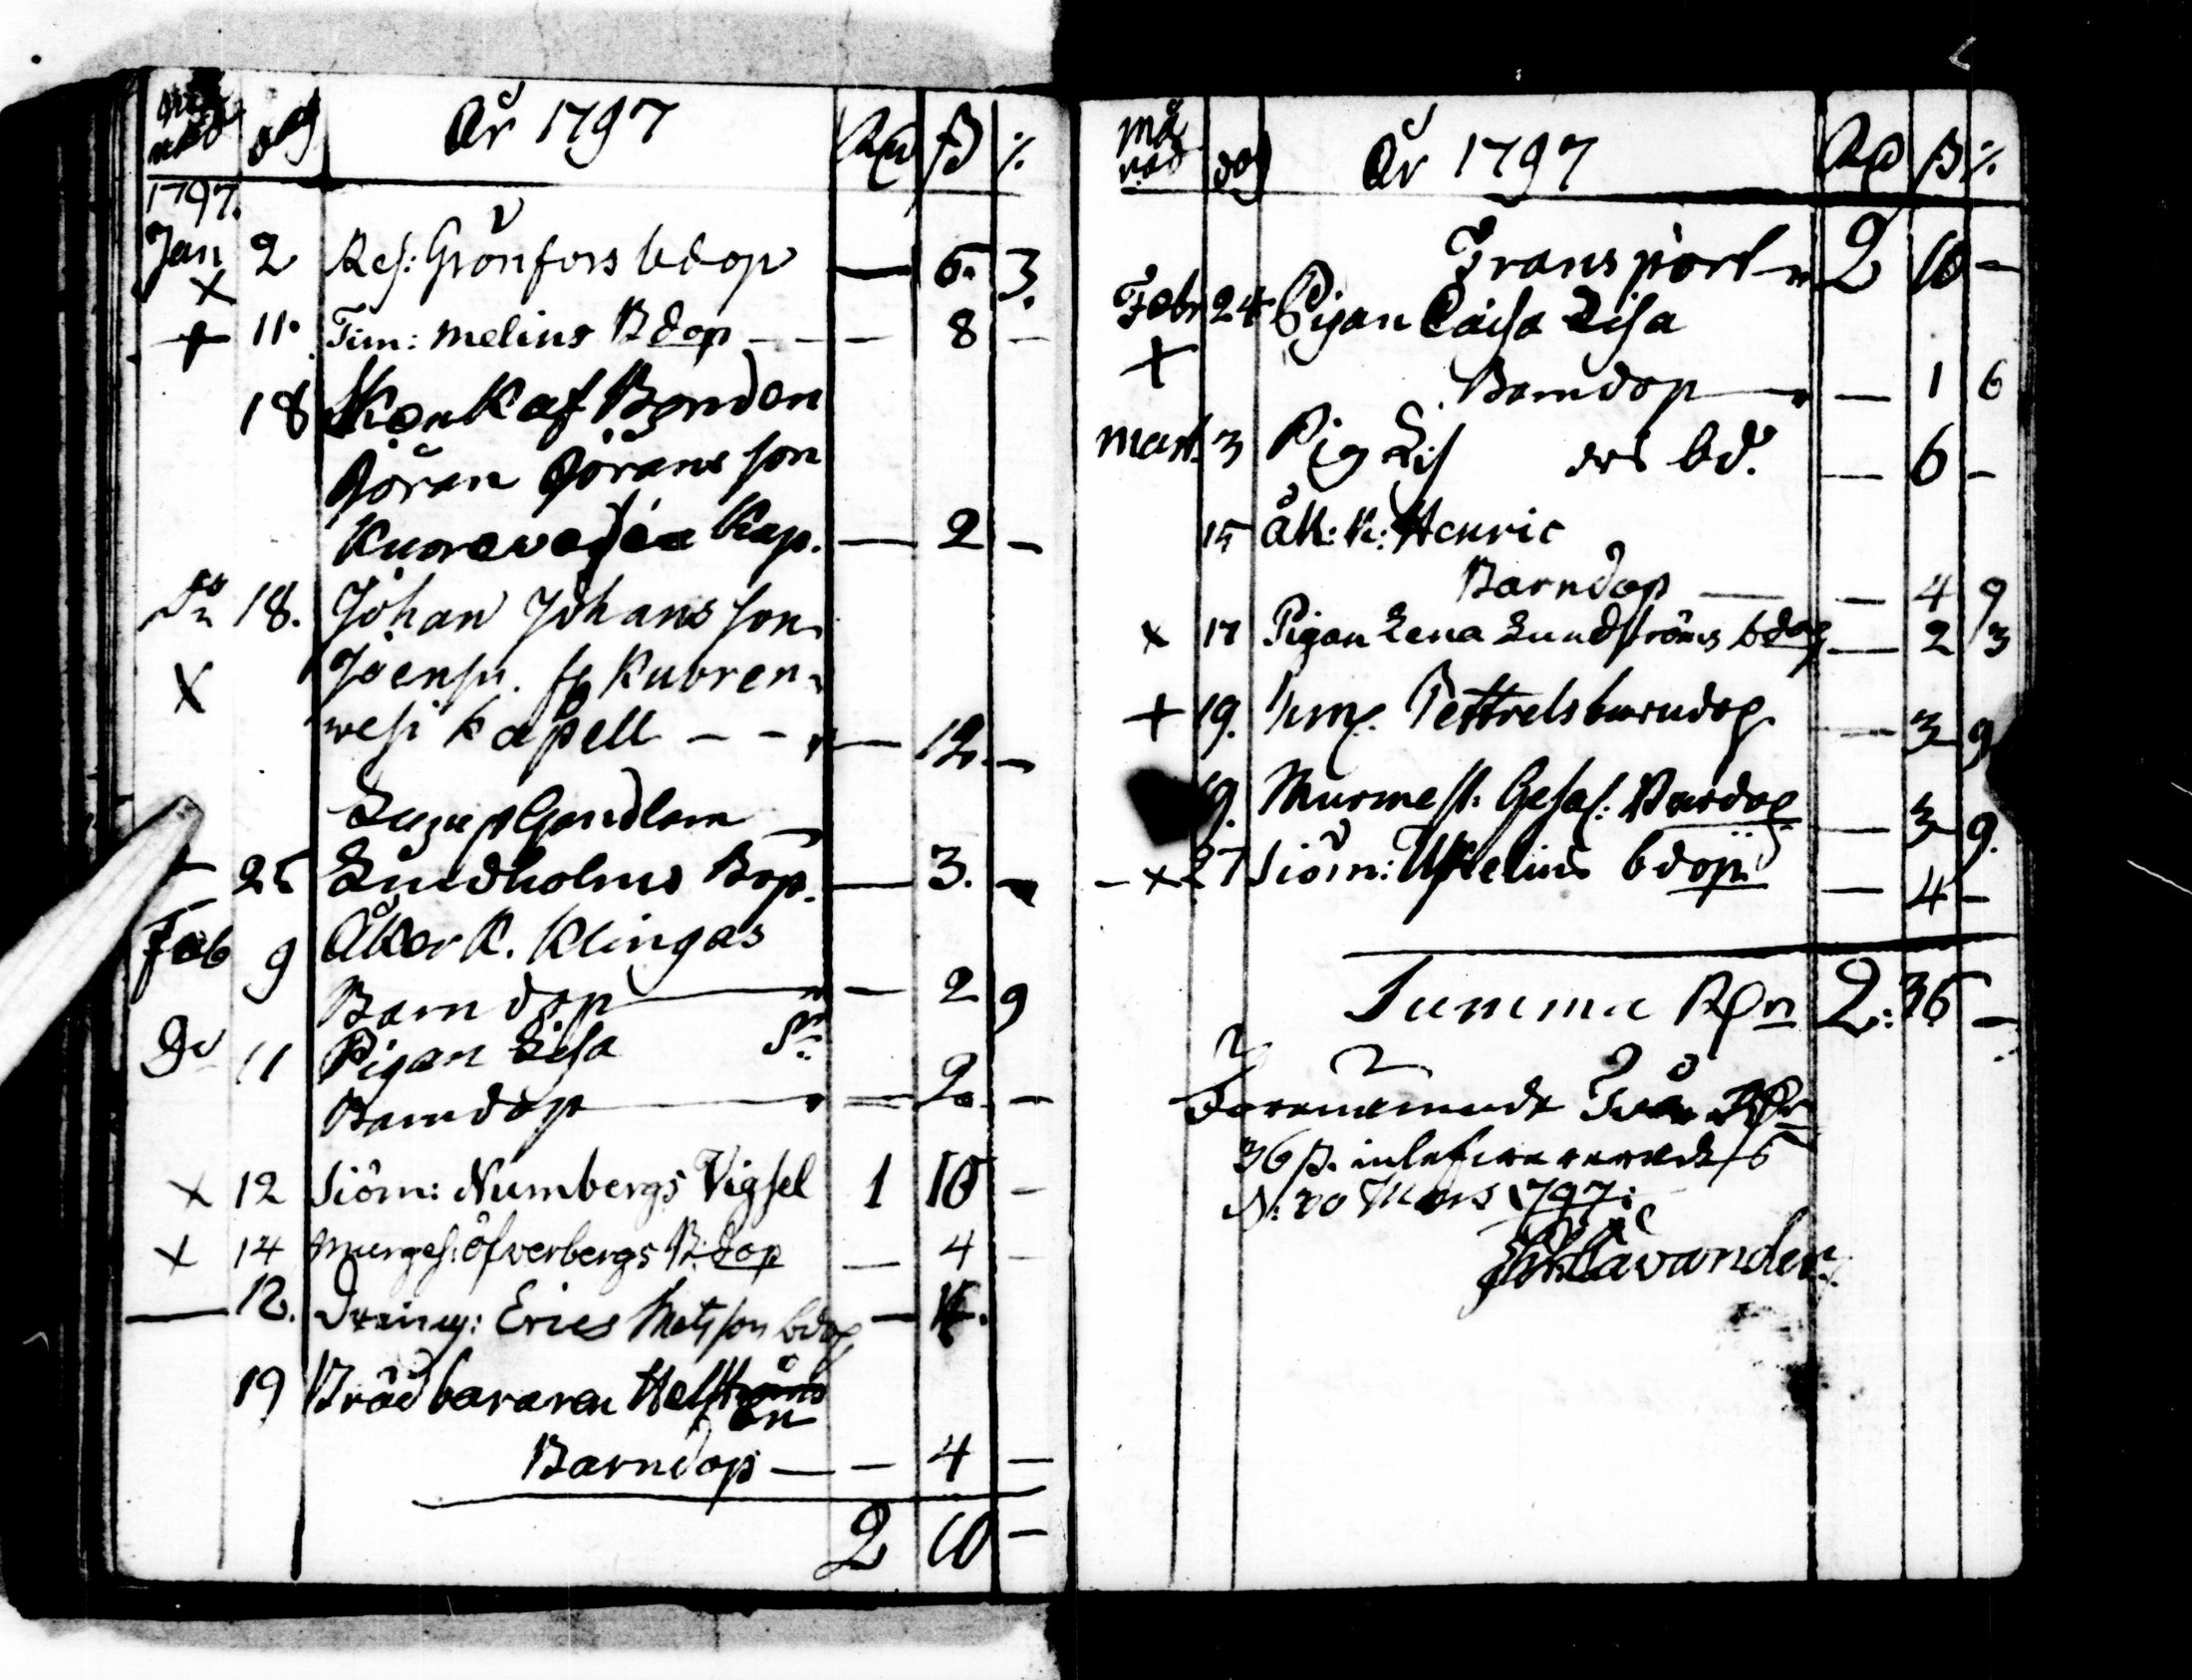 månad dag År 1797 Rd ß %
1797.
Jan 2 Ref: Grönfors bdop — 6. 3.
+ 11. Tim: Melins Bdop — — 8 —
18 Skänk af Bonden
Göran Göransson
Kuorevesi Kap. — 2 —
Dn 18. Johan Johansson
x Joensu. fr Kuoren-
wesi Kapell — — — 12. —
25 Lundholms Bop. — 3. —
Feb 9 Åker K. Klingas
Barndop — — 2 9
Do 11 Pigan Lisa Sn
Barndop — — 2. —
x 12 Siöm: Numbergs Vigsel 1 10 —
x 14 Murges: Öfverbergs B:dop — 4 —
— 12. Dreng: Erics Matsson bdop — 4.
19 Brädbararen Hellstén
Barndop — — 4 —
2 10 —
Månad dag År 1797 Rd ß %
Transport 2 10 —
Febr 24 Pigan Caisa Lisa
+ Barndop — — 1 6
Mart. 3 Pig Lis drs bd. — 6 —
15 Åk: K: Henric
Barndop — — 4 9
x 17 Pigan Lena Lundströms bdop — 2 3
+ 19. Timm. Pettrels barndop — 3 9
19. Murmest: Gesäl: Bardop — 3 9.
— x 27 Siöm: bdop — 4 —
Summa Rdr 2: 36 —
Förenämnde Två Rdr
36 ß. inlefvererade
d: 20 Mars 1797:
Cavander